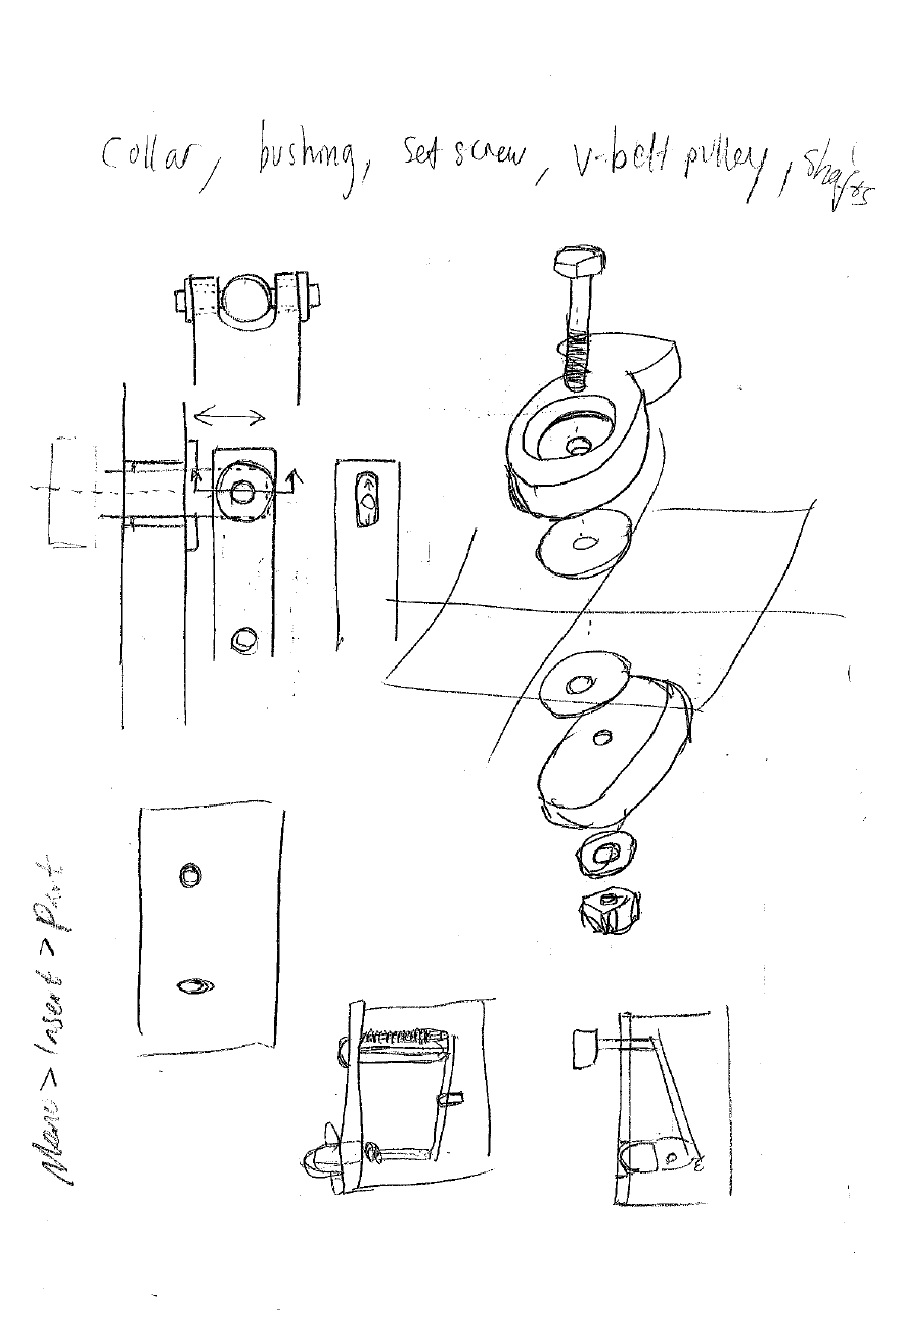 Collar, bushing, set screw, v-belt pulley, shafts
Menu > Insert > Part